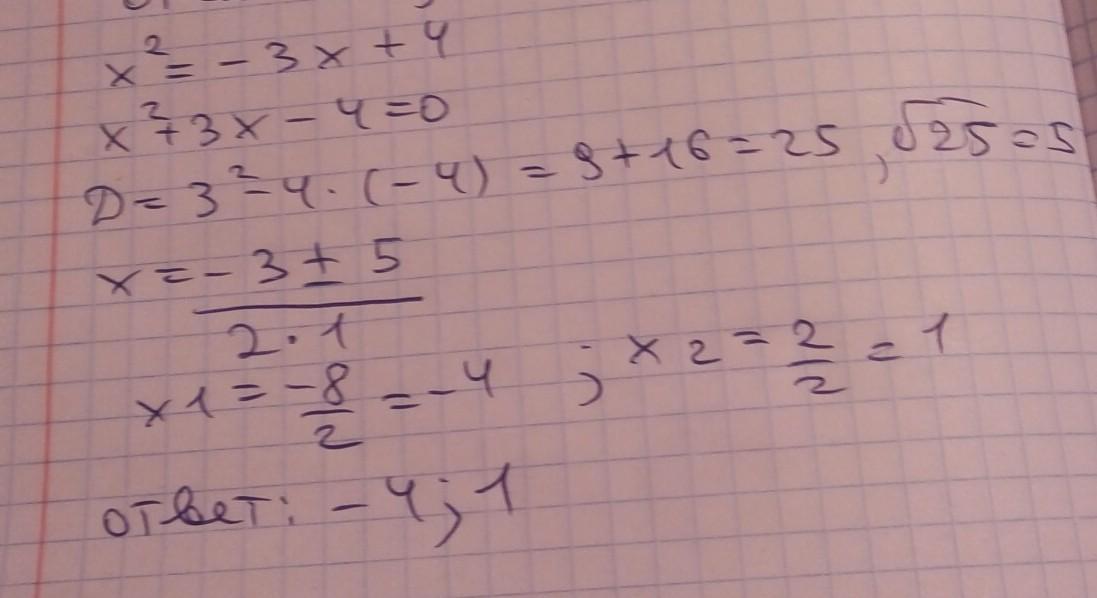 x² = -3x + 4
x² + 3x - 4 = 0
D = 3² - 4 · (-4) = 9 + 16 = 25 , √25 = 5
x = -3 ± 5
2 · 1
x1 = -8/2 = -4 ; x2 = 2/2 = 1
ответ: -4; 1